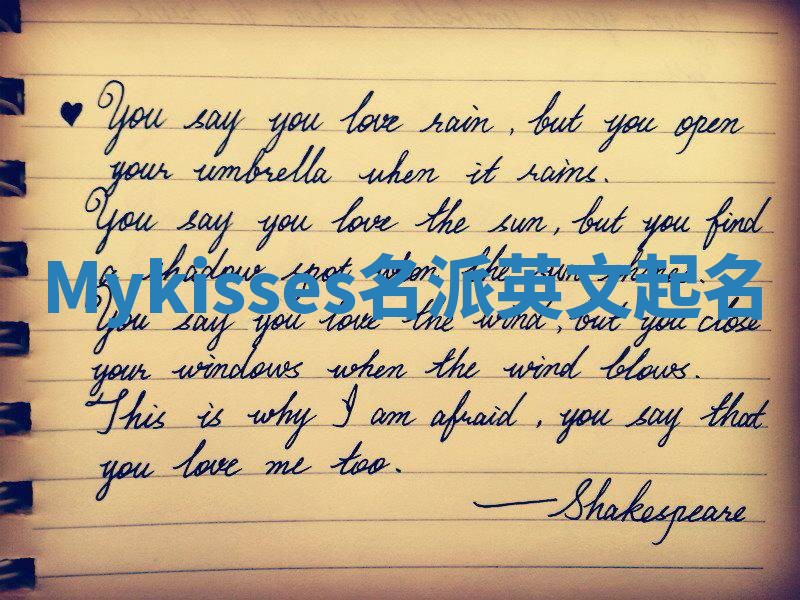 ♥ You say you love rain, but you open
your umbrella when it rains.
You say you love the sun, but you find
a shadow spot when the sun shines.
Mykisses名派英文起名
You say you love the wind, but you close
your windows when the wind blows.
This is why I am afraid, you say that
you love me too.
—Shakespeare